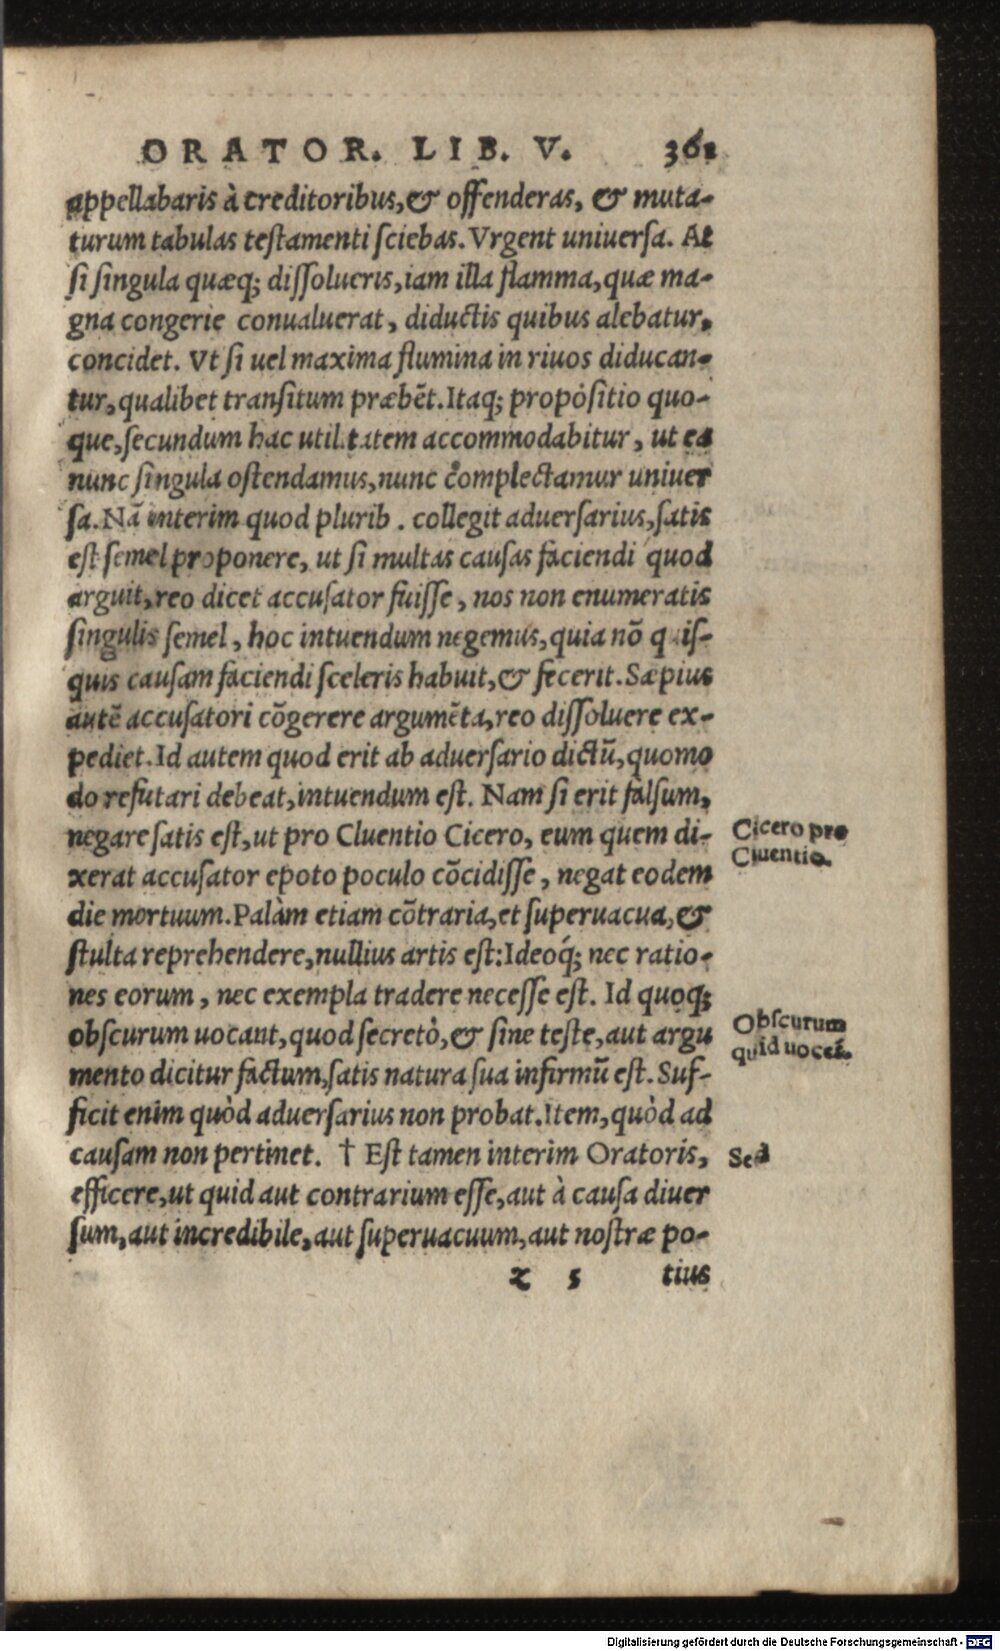 ORATOR. LIB. V. 361
appellabaris à creditoribus, & offenderas, & muta-
turum tabulas testamenti sciebas. Vrgent uniuersa. At
si singula quæq; dissolueris, iam illa flamma, quæ ma-
gna congerie conualuerat, diductis quibus alebatur,
concidet. Vt si uel maxima flumina in riuos diducan-
tur, qualibet transitum præbēt. Itaq; propositio quo-
que, secundum hac utilitatem accommodabitur, ut ea
nunc singula ostendamus, nunc complectamur uniuer
sa. Nā interim quod plurib. collegit aduersarius, satis
est semel proponere, ut si multas causas faciendi quod
arguit, reo dicet accusator fuisse, nos non enumeratis
singulis semel, hoc intuendum negemus, quia nō quis-
quis causam faciendi sceleris habuit, & fecerit. Sæpius
autē accusatori cōgerere argumēta, reo dissoluere ex-
pediet. Id autem quod erit ab aduersario dictū, quomo
do refutari debeat, intuendum est. Nam si erit falsum,
negare satis est, ut pro Cluentio Cicero, eum quem di-
xerat accusator epoto poculo cōcidisse, negat eodem
die mortuum. Palàm etiam cōtraria, et superuacua, &
stulta reprehendere, nullius artis est: Ideoq́; nec ratio-
nes eorum, nec exempla tradere necesse est. Id quoq;
obscurum uocant, quod secretò, & sine teste, aut argu
mento dicitur factum, satis natura sua infirmū est. Suf-
ficit enim quòd aduersarius non probat. Item, quòd ad
causam non pertinet. † Est tamen interim Oratoris,
efficere, ut quid aut contrarium esse, aut à causa diuer
sum, aut incredibile, aut superuacuum, aut nostræ po-
z 5 tius
Cicero pro
Cluentio.
Obscurum
quid uocēt.
Sed
Digitalisierung gefördert durch die Deutsche Forschungsgemeinschaft - DFG